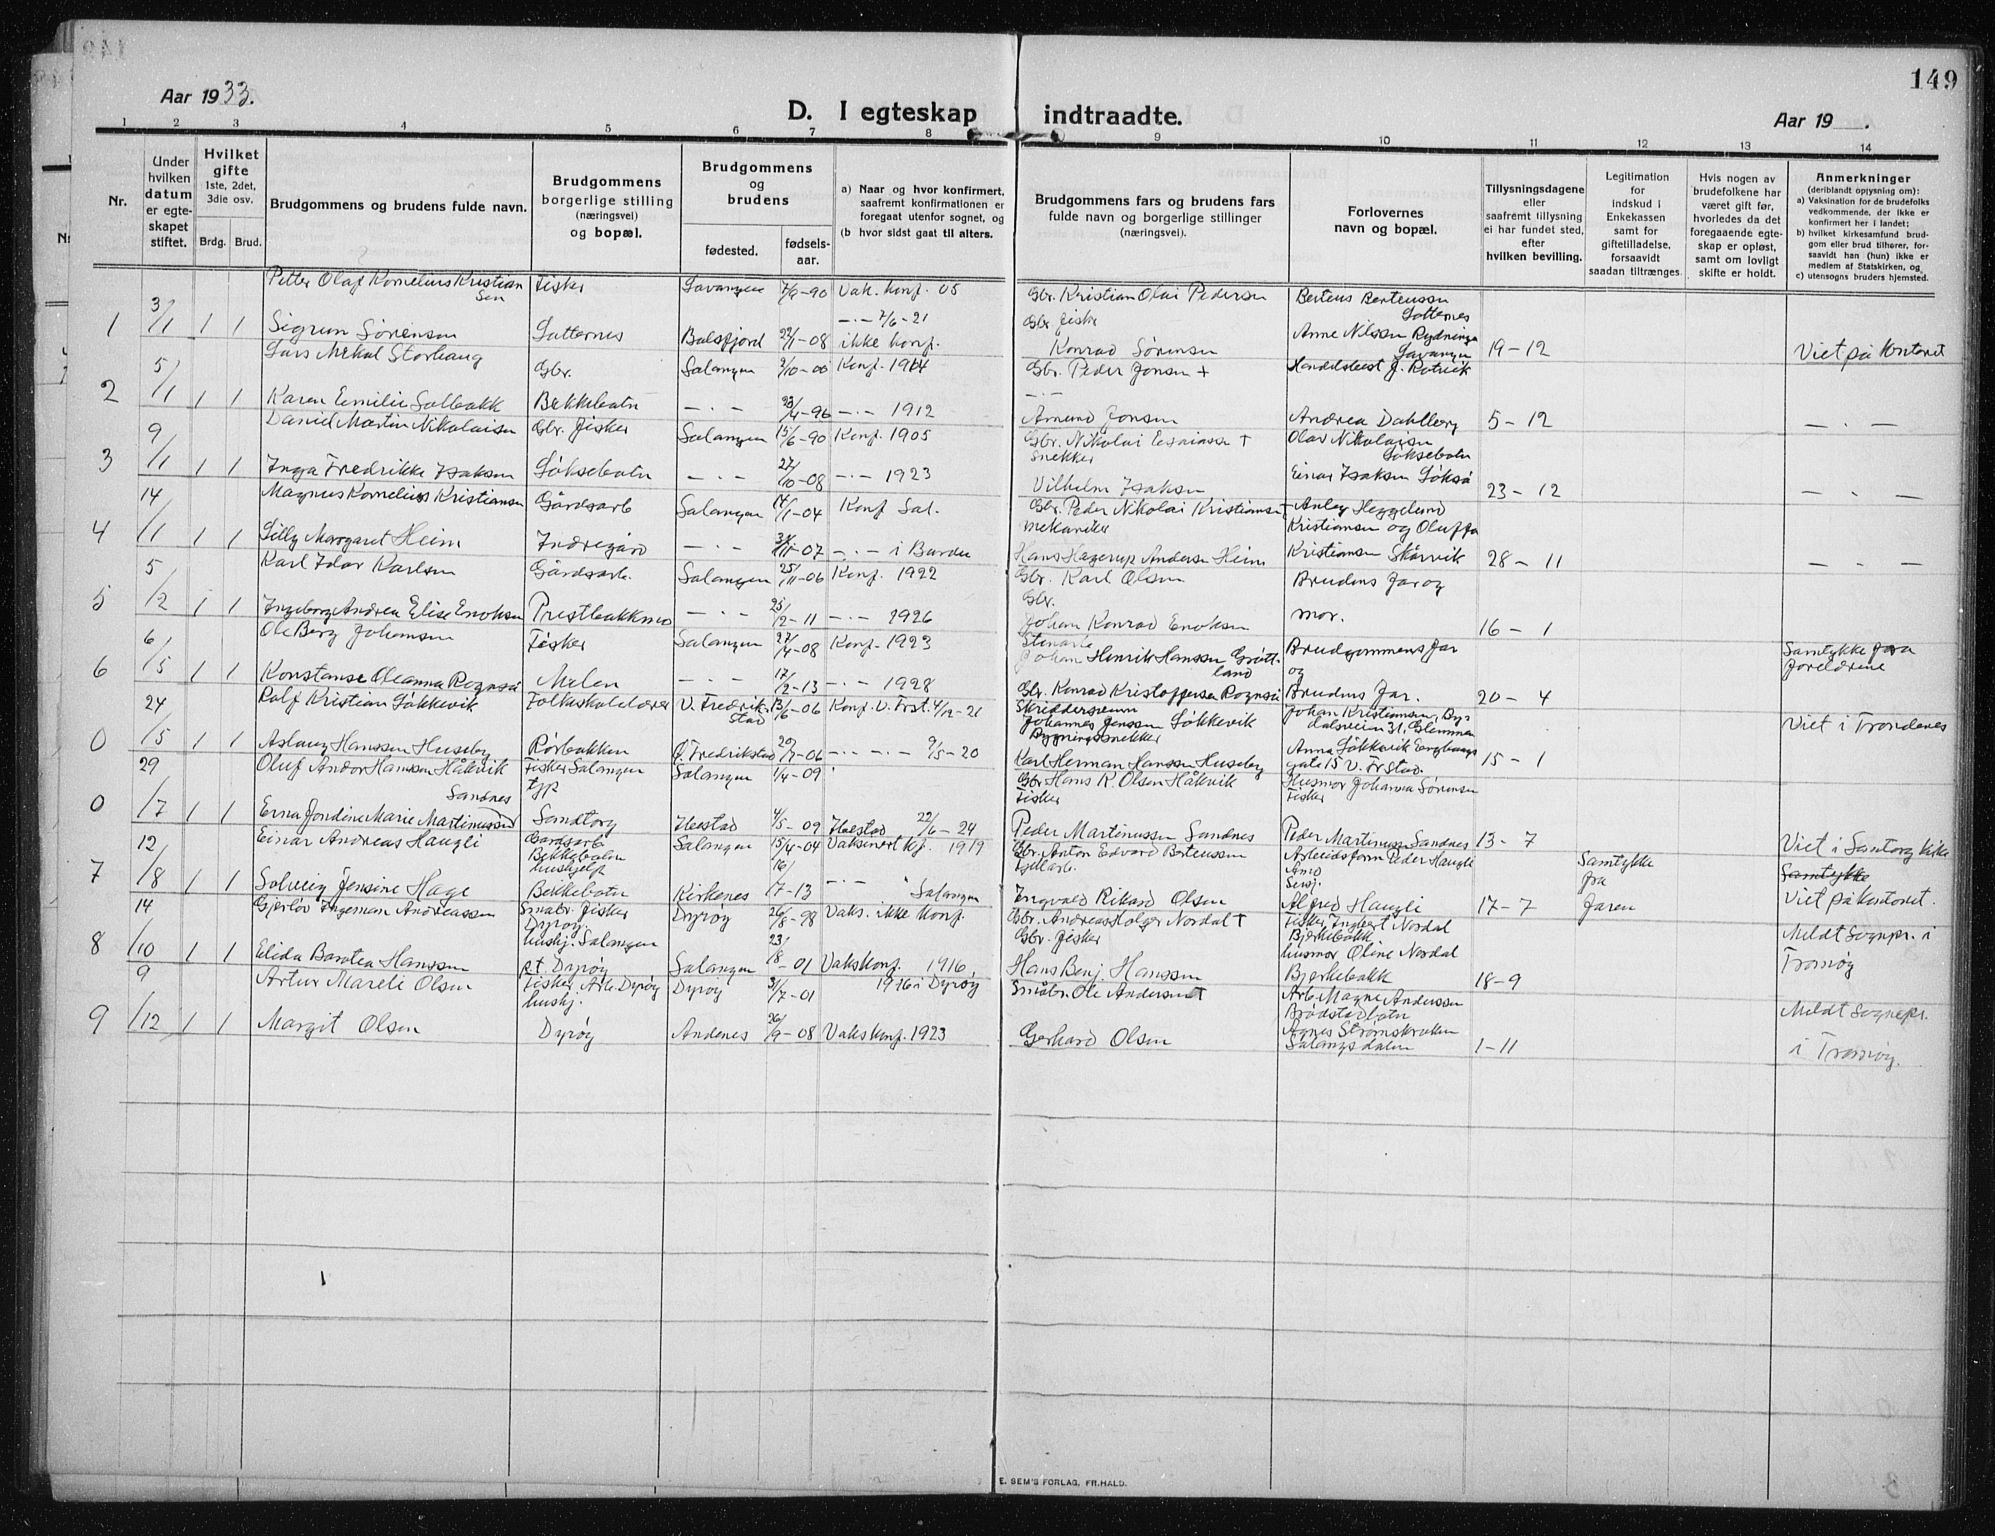 149
Aar 1933.
D. I egteskap indtraadte.
Aar 19 .
1 2 3 4 5 6 7 8 9 10 11 12 13 14
Nr.
Under hvilken datum er egteskapet stiftet.
Hvilket gifte 1ste, 2det, 3die osv.
Brdg. Brud.
Brudgommens og brudens fulde navn.
Brudgommens borgerlige stilling (næringsvei) og bopæl.
Brudgommens og brudens
fødested. fødselsaar.
a) Naar og hvor konfirmert, saafremt konfirmationen er foregaat utenfor sognet, og
(b hvor sidst gaat til alters.
Brudgommens fars og brudens fars fulde navn og borgerlige stillinger (næringsvei).
Forlovernes navn og bopæl.
Tillysningsdagene eller saafremt tillysning ei har fundet sted, efter hvilken bevilling.
Legitimation for indskud i Enkekassen samt for giftetilladelse, forsaavidt saadan tiltrænges
Hvis nogen av brudefolkene har været gift før, hvorledes da det foregaaende egteskap er opløst, samt om lovligt skifte er holdt.
Anmerkninger
(deriblandt opjysning om):
a) Vaksination for de brudefolks vedkommende, der ikke er konfirmert her i landet;
b) hvilket kirkesamfund brudgom eller brud tilhører, forsaavidt han (hun) ikke er medlem af Statskirken, og
c) utensogns bruders hjemsted.
Petter Olaf Kornelius Kristiansen Fisker Lavangen 7/6-90 Vak. Konf. 05 Gbr. Kristian Olai Pedersen Bertens Bertenssen
1 3/1 1 1 Sigrun Sørensen Balsfjord 22/1-08 ikke konf. Gbr fisker Konrad Sørensen Anne Nilssen Lavangen 19-12 Viet på kontoret
Lars Mekal Storhaug Gbr. Salangen 2/10-00 Konf. 1914 Gbr. Peder Jonsen +
2 5/1 1 1 Karen Emilie Solbakk Bekkebotn -.- 23/4-96 -.- 1912 Amund Jonsen Andrea Dahlberg 5-12 -.-
David Martin Nikolaisen Gbr. fisker Salangen 15/6-90 Konf. 1905 Gbr. Nikolai Esaiassen + Olav Nikolaisen
3 9/1 1 1 Inga Fredrikke Isaksen Løksebotn -.- 27/10-08 -.- 1923 snekker Vilhelm Isaksen Løksebotn Einar Isaksen Løkså 23-12 -.-
Magnus Kornelius Kristiansen Gårdsarb Salangen 14/1-04 Konf Sal. Gbr. Peder Nikolai Kristiansen + Heggelund
4 14/1 1 1 Lilly Margaret Heim -.- 07 -.- i Bardu mekaniker Hans Hagerup Andersen Heim Kristiansen og Oluffa Kristiansen Skårvik 28-11 -.-
Karl Idar Karlsen Gårdsarb. Salangen 25/11-06 Konf. 1922 Gbr. Karl Olsen Brudens far og
5 5/2 1 1 Ingeborg Andrea Elise Enoksen Prestbakkmo -.- 25/2-11 -.- 1926 Gbr. Johan Konrad Enoksen mor. 16-1
Ole Berg Johansen Fisker Salangen 27/4-08 Konf. 1923 Johan Henrik Hanssen Grøttland Brudgommens far Samtykke fra foreldrene
6 6/5 1 1 Konstanse Oleanna Rognså Melen -.- 17/2-13 -.- 1928 Gbr. Konrad Kristoffersen Rognså og Brudens far. 20-4
Ralf Kristian Løkkevik Folkskolelærer V. Fredrikstad 13/6-06 Konf. V. Frst. 4/12-21 Johannes Jenssen Løkkevik Johan Kristiansen, Viet i Trondenes
0 24/5 1 1 Aslaug Hanssen Huseby Rørbakken V. Fredrikstad 20/7-06 -.-.- 9/5-20 Bygningssnekker Karl Herman Hanssen Huseby Anna Løkkevik gate 15 V. Frstad. 15-1
Oluf Andor Hanssen Håkvik Fisker Salangen Salangen 1/4-09 Gbr Hans R. Olsen Håkvik Husmor Johanna Sørensen
0 29/7 1 1 Erna Jondine Marie Martinussen Sandnes Sandtorg 4/5-09 22/6-24 Fisker Peder Martinussen Sandnes Fisker Peder Martinussen Sandnes 13-7 Viet i Santorg kirke
Einar Andreas Haugli Gardsarb Bekkebotn Salangen 15/4-04 Vaksinert Kf. 1919 Gbr. Anton Edvard Bertenssen Arbeidsform Peder Haugli Samtykke fra faren
7 12/8 1 1 Solveig Jensine Hage hushjelp Bekkebotn Kirkenes 16/7-13 -.- Salangen Ingvald Rikard Olsen Alfred Haugli 17-7 Samtykke Viet på kontoret.
Gjerløv Ingeman Andreassen Småbr. fisker Dyrøy. Dyrøy 26/8-98 Vaks. ikke konf. Gbr. Andreas Holger Nordal + Fisker Ingbert Nordal Bjerkebakk Meldt Sognepr. i Tromøy
8 14/10 1 1 Elida Barotea Hanssen hushj. Salangen p.t. Dyrøy Salangen 23/8-01 Vaks Konf. 1916 Gbr. fisker Hans Benj. Hanssen husmor Oline Nordal Bjerkebakk 18-9
Artur Mareli Olsen Fisker, Arb. Dyrøy Dyrøy 31/7-01 1916 i Dyrøy Småbr. Ole Andersen + Arb. Magne Anderssen Brødstadbotn Meldt Sognepr. i Tromøy.
9 9/12 1 1 Margit Olsen hushj. Dyrøy Andenes 26/9-08 Vaks Konf. 1923 Gerhard Olsen Agnes Strømskroken Salangsdalen 1-11
E. SEM'S FORLAG, FR.HALD.